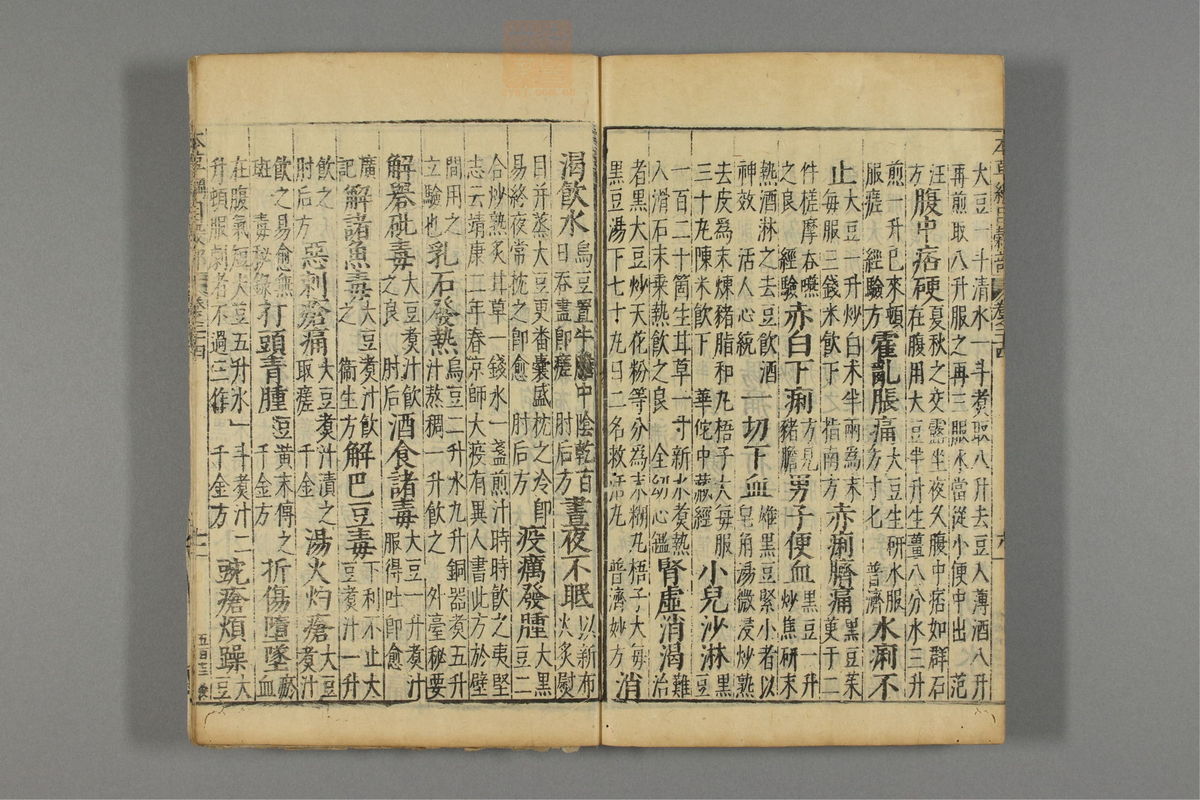 大豆一斗清水一斗煮取八升去豆入薄酒八升
再煎取八升服之再三服水當從小便中出 范
汪 腹中痞硬 夏秋之交露坐夜久腹中痞如群石在腹用大豆半升生薑八分水三升
煎一升已來頓服瘥 經驗方 霍亂脹痛 大豆生研水服方寸匕 普濟 水痢不
止 大豆一升炒白朮半兩為末每服三錢米飲下 指南方 赤痢臍痛 黑豆茱萸子二
件搓摩吞嚥之良 經驗 赤白下痢 方見豬膽 男子便血 黑豆一升炒焦研末
熱酒淋之去豆飲酒神效 活人心統 一切下血 雄黑豆緊小者以皂角湯微浸炒熟
去皮為末煉豬脂和丸梧子大每服三十丸陳米飲下 華佗中藏經 小兒沙淋 黑豆
一百二十箇生甘草一寸新水煮熱入滑石末乘熱飲之良 全幼心鑑 腎虛消渴 難治
者黑大豆炒天花粉等分為末糊丸梧子大每黑豆湯下七十丸日二名救活丸 普濟妙方 消
渴飲水 烏豆置牛膽中陰乾百日吞盡即瘥 肘后方 晝夜不眠 以新布火炙熨
目并蒸大豆更番囊盛枕之冷即易終夜常枕之即愈 肘后方 疫癘發腫 大黑豆二
合炒熟炙甘草一錢水一盞煎汁時時飲之夷堅志云靖康二年春京師大疫有異人書此方於壁
間用之立驗也 乳石發熱 烏豆二升水九升銅器煮五升汁熬稠一升飲之 外臺秘要
解礜砒毒 大豆煮汁飲之良 肘后 酒食諸毒 大豆一升煮汁服得吐即愈
廣記 解諸魚毒 大豆煮汁飲之 衞生方 解巴豆毒 下利不止大豆煮汁一升
飲之 肘后方 惡刺瘡痛 大豆煮汁漬之取瘥 千金 湯火灼瘡 大豆煮汁
飲之易愈無斑 秘錄 打頭青腫 豆黃末傅之 千金方 折傷墮墜 瘀血
在腹氣短大豆五升水一斗煮汁二升頓服劇者不過三作 千金方 豌瘡煩躁 大豆